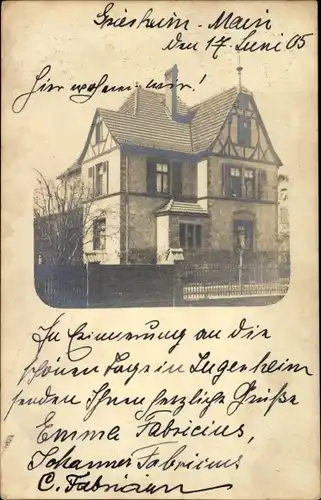 Griesheim - Main
den 17. Juni 05
Hier wohnen wir!
In Erinnerung an die
schönen Tage in Jugenheim
senden Ihnen herzliche Grüße
Emma Fabricius,
Johannes Fabricius
C.